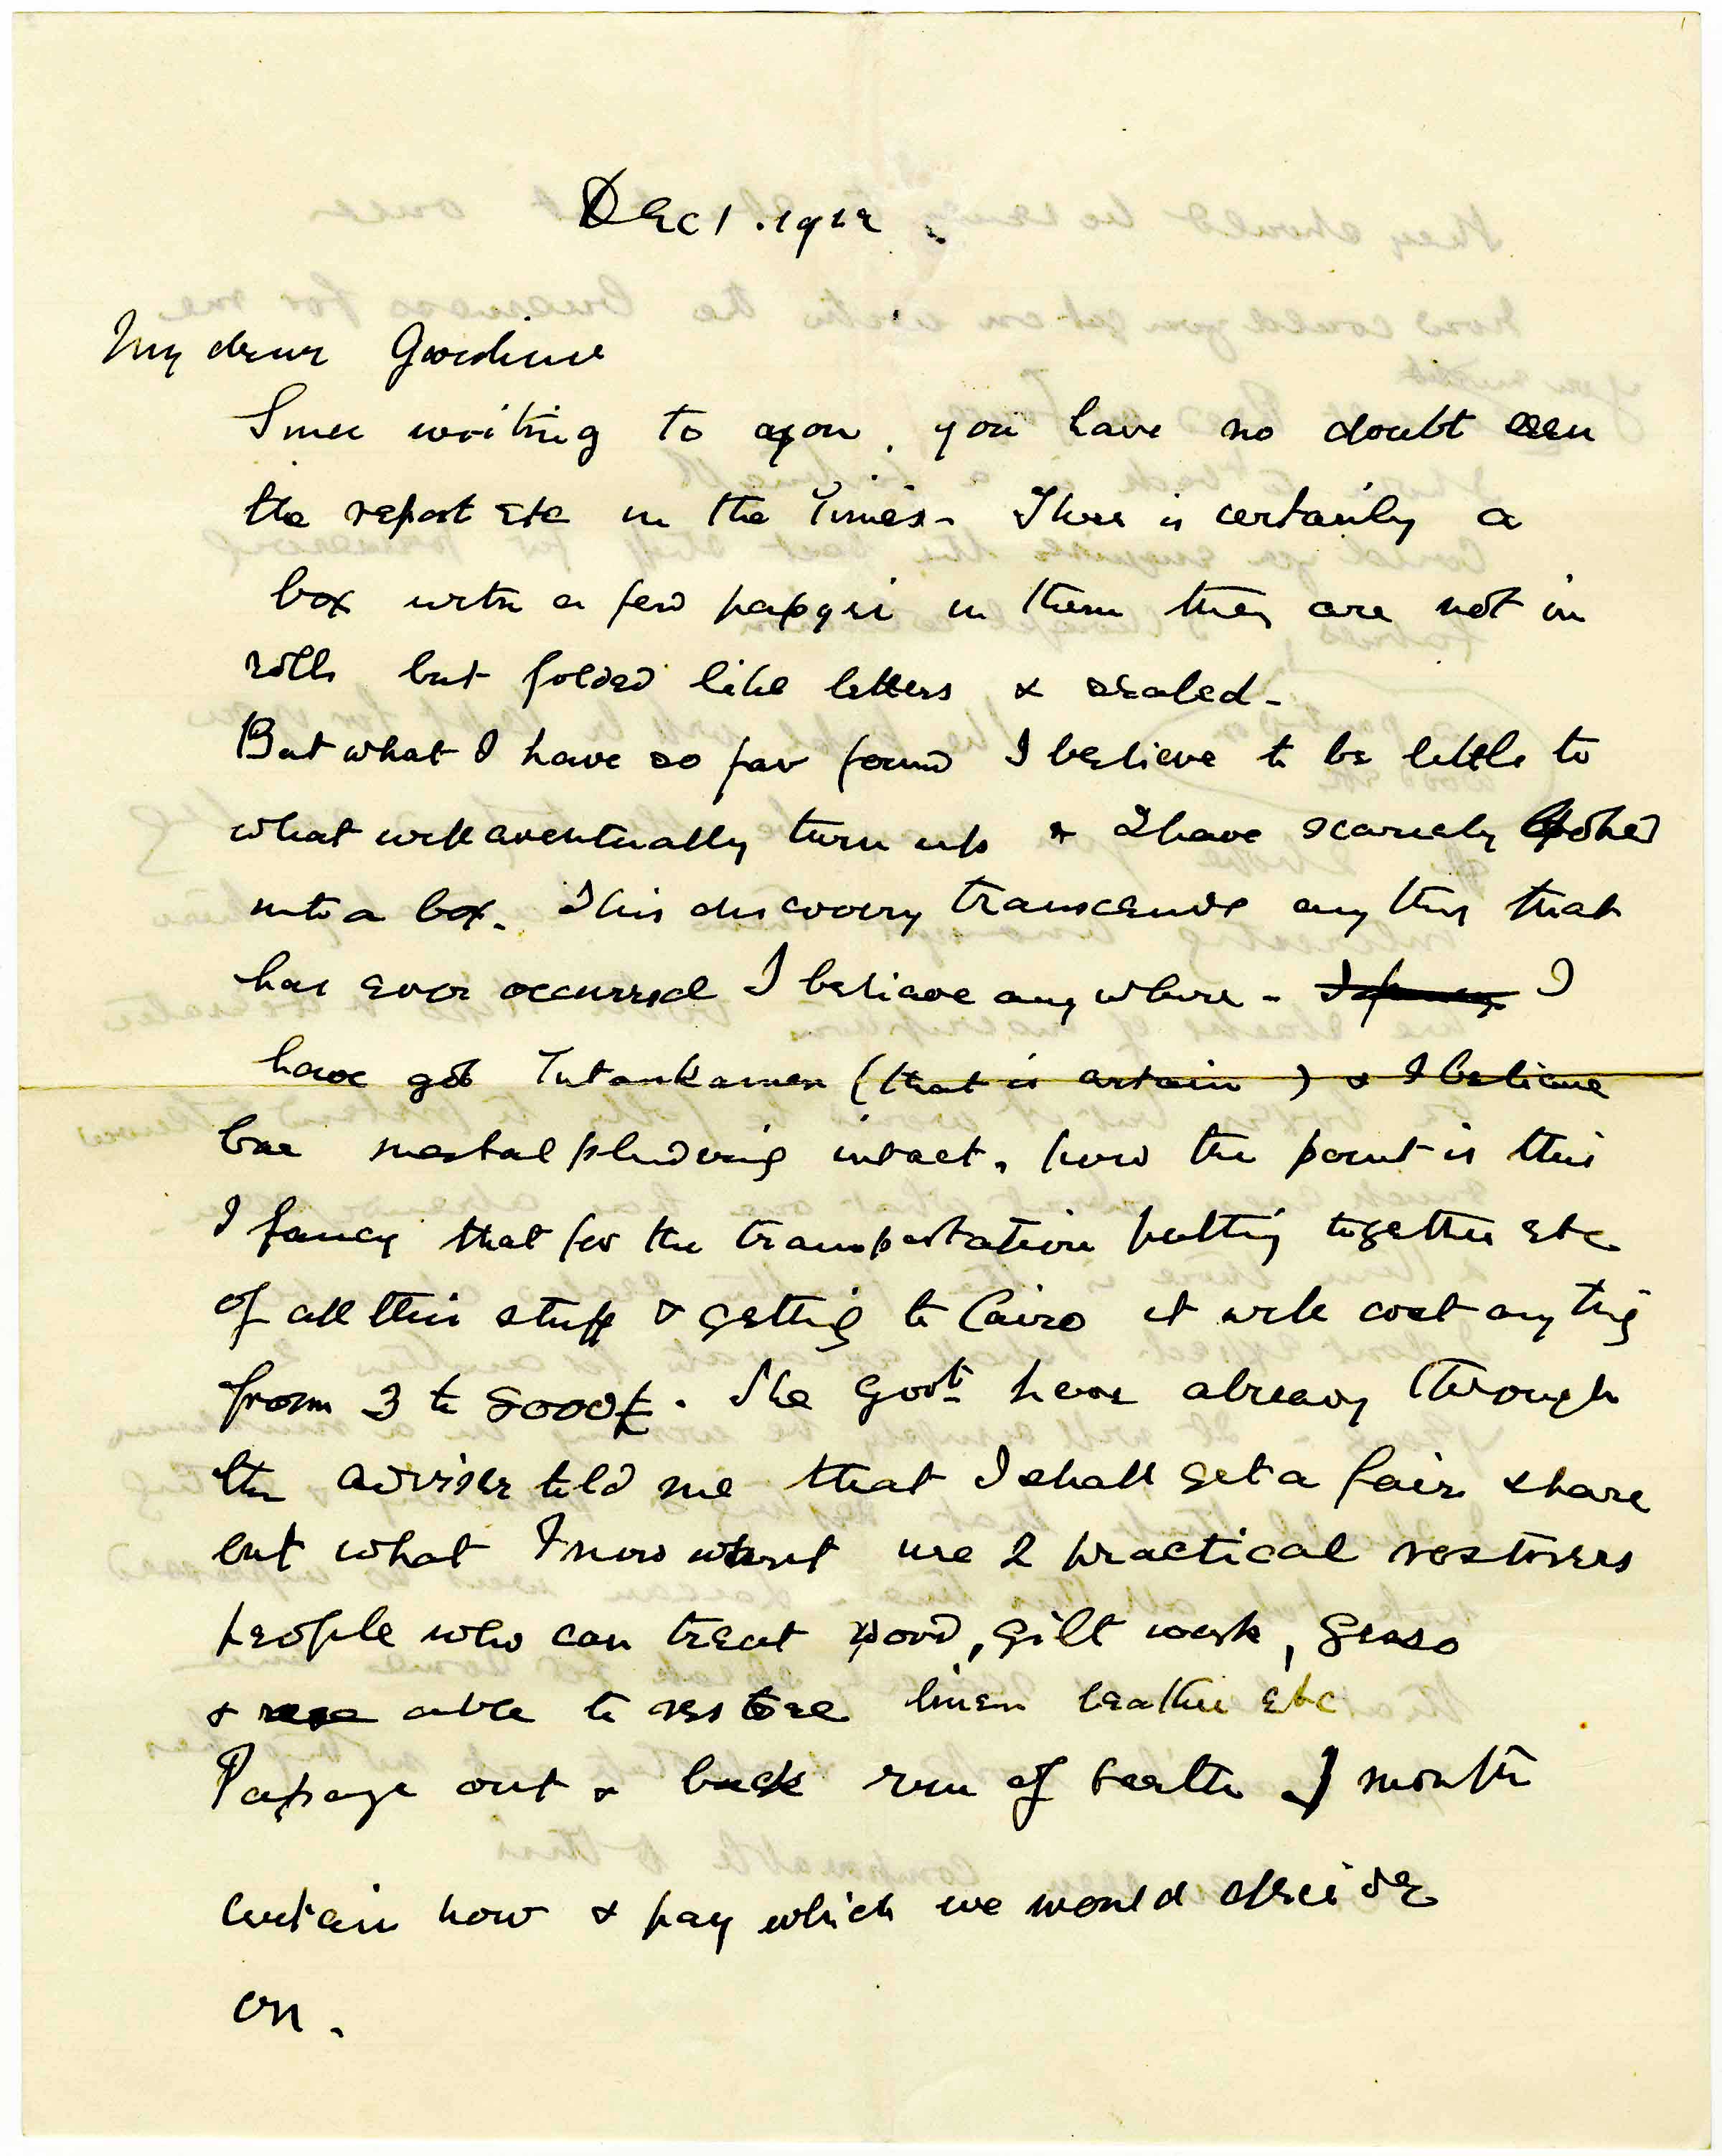 Dec 1. 1922.
My dear Gardiner
Since writing to you. you have no doubt seen
the report etc in the Times - There is certainly a
box with a few papyri in them they are not in
rolls but folded like letters & sealed -
But what I have so far found I believe to be little to
what will eventually turn up & I have scarcely looked
into a box. This discovery transcends any thing that
has ever occurred I believe any where - I fancy I
have got Tutankamen (that is certain) & I believe
intact. Now the point is this
I fancy that for the transportation putting together etc
of all this stuff & getting to Cairo it will cost any thing
from 3 to 8000£. The Govt. have already through
the adviser told me that I shall get a fair share
but what I now want are 2 practical restorers
people who can treat wood, gilt work, gesso
& able to restore linen leather etc
Passage out & back run of 5 month
certain now & pay which we would decide
on.